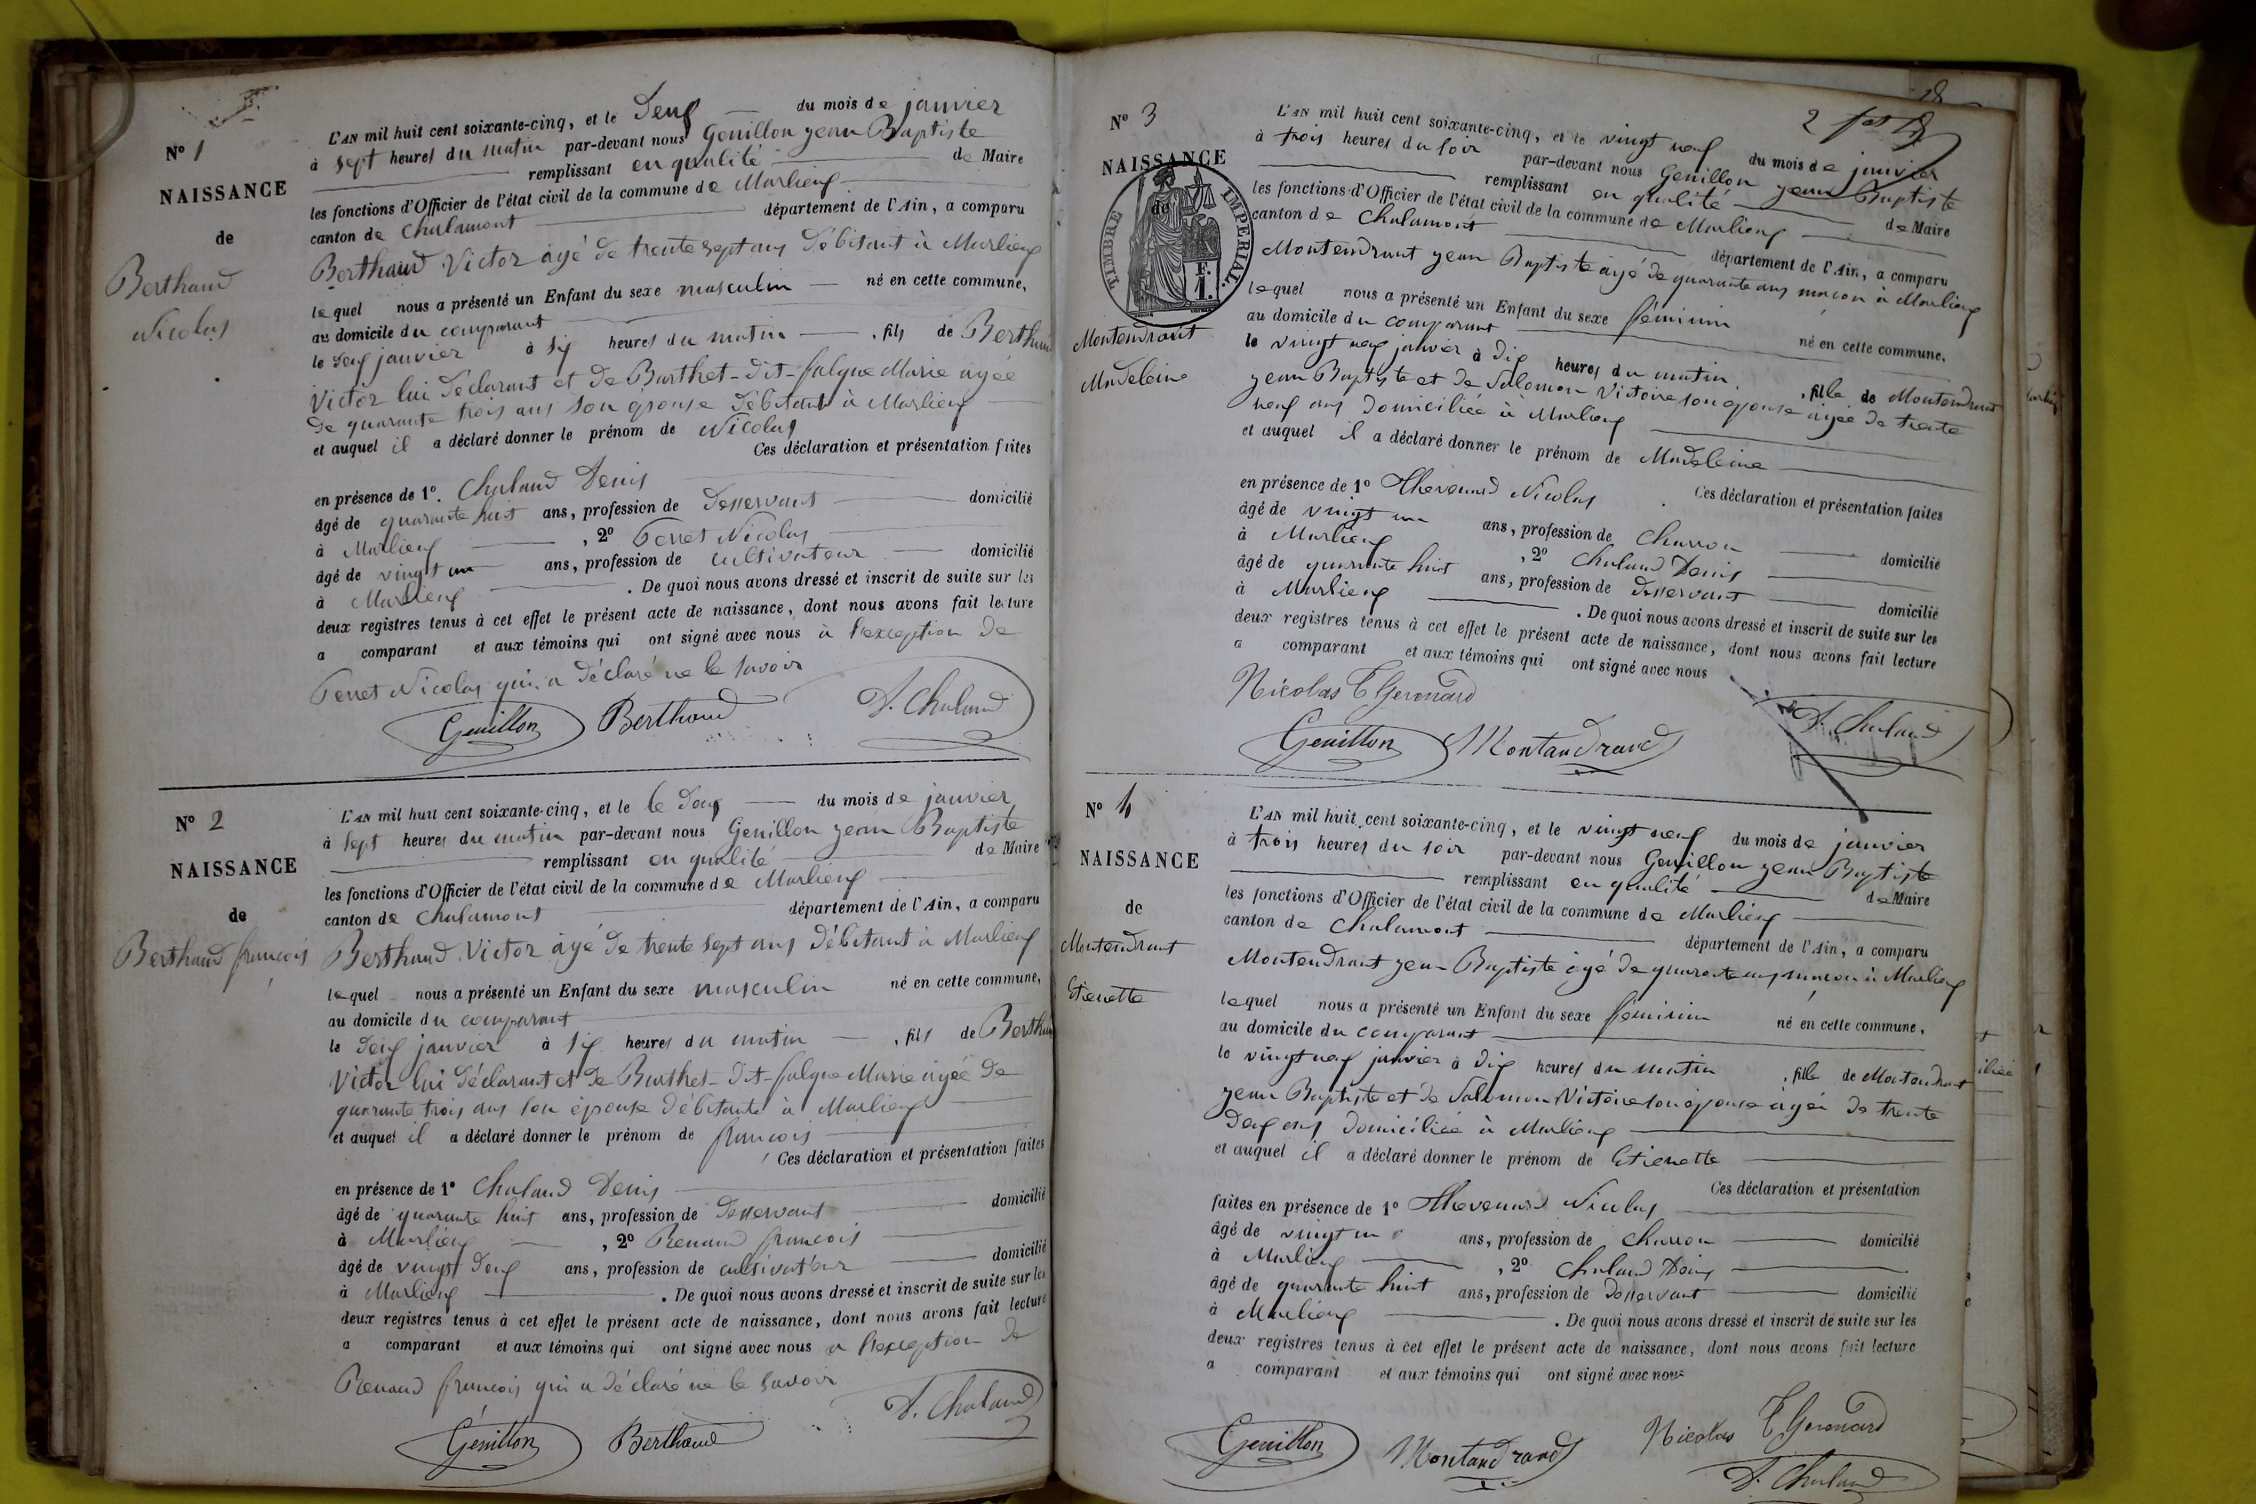 N° 1
NAISSANCE
de
Berthaud
Nicolas
L'AN mil huit cent soixante-cinq, et le Deux du mois de janvier
à sept heures du matin par-devant nous Genillon jean Baptiste
remplissant en qualité de Maire
les fonctions d'Officier de l'état civil de la commune de Marlieux
canton de Chalamont département de l'Ain, a comparu
Berthaud Victor âgé de trente sept ans Débitant à Marlieux
lequel nous a présenté un Enfant du sexe masculin né en cette commune,
au domicile du comparant
le Deux janvier à six heures du matin , fils de Berthaud
Victor lui Déclarant et de Barthet-dit-falque Marie agée
De quarante trois ans son epouse Débitante à Marlieux
et auquel il a déclaré donner le prénom de Nicolas
Ces déclaration et présentation faites
en présence de 1°. Chaland Denis
âgé de quarante huit ans, profession de Desservant domicilié
à Marlieux , 2° Perret Nicolas
âgé de vingt un ans, profession de cultivateur domicilié
à Marlieux . De quoi nous avons dressé et inscrit de suite sur les
deux registres tenus à cet effet le présent acte de naissance, dont nous avons fait lecture
a comparant et aux témoins qui ont signé avec nous à l'exception de
Perret Nicolas qui a déclaré ne le savoir
Genillon Berthaud D. Chaland
N° 2
NAISSANCE
de
Berthaud françois
L'AN mil huit cent soixante-cinq, et le le Deux du mois de janvier
à sept heures du matin par-devant nous Genillon jean Baptiste
remplissant en qualité de Maire
les fonctions d'Officier de l'état civil de la commune de Marlieux
canton de Chalamont département de l'Ain, a comparu
Berthaud Victor âgé de trente sept ans Débitant à Marlieux
lequel nous a présenté un Enfant du sexe masculin né en cette commune,
au domicile du comparant
le Deux janvier à six heures du matin , fils de Berthaud
Victor lui Déclarant et de Barthet-dit-falque Marie agée De
quarante trois ans son épouse Débitante à Marlieux
et auquel il a déclaré donner le prénom de françois
Ces déclaration et présentation faites
en présence de 1° Chaland Denis
âgé de quarante huit ans, profession de Desservant domicilié
à Marlieux , 2° Renaud françois
âgé de vingt Deux ans, profession de cultivateur domicilié
à Marlieux . De quoi nous avons dressé et inscrit de suite sur les
deux registres tenus à cet effet le présent acte de naissance, dont nous avons fait lecture
a comparant et aux témoins qui ont signé avec nous a l'exception de
Renaud françois qui a déclaré ne le savoir
Genillon Berthaud D. Chaland
2
N° 3
NAISSANCE
de
TIMBRE IMPERIAL
F.
1.
Montendraut
Madeleine
L'AN mil huit cent soixante-cinq, et le vingt neuf du mois de janvier
à trois heures du soir par-devant nous Genillon jean Baptiste
remplissant en qualité de Maire
les fonctions d'Officier de l'état civil de la commune de Marlieux
canton de Chalamont département de l'Ain, a comparu
Montendraut jean Baptiste âgé de quarante ans maçon à Marlieux
lequel nous a présenté un Enfant du sexe féminin né en cette commune,
au domicile du comparant
le vingt neuf janvier à dix heures du matin , fille de Montendraut
jean Baptiste et de Salomon Victoire son epouse agée de trente
neuf ans Domiciliée à Marlieux
et auquel il a déclaré donner le prénom de Madeleine
Ces déclaration et présentation faites
en présence de 1° Thevenard Nicolas
âgé de vingt un ans, profession de Charron domicilié
à Marlieux , 2° Chaland Denis
âgé de quarante huit ans, profession de Desservant domicilié
à Marlieux . De quoi nous avons dressé et inscrit de suite sur les
deux registres tenus à cet effet le présent acte de naissance, dont nous avons fait lecture
a comparant et aux témoins qui ont signé avec nous
Nicolas
Genillon Montandraud D. Chaland
N° 4
NAISSANCE
de
Montendraut
Etienette
L'AN mil huit cent soixante-cinq, et le vingt neuf du mois de janvier
à trois heures du soir par-devant nous Genillon jean Baptiste
remplissant en qualité de Maire
les fonctions d'Officier de l'état civil de la commune de Marlieux
canton de Chalamont département de l'Ain, a comparu
Montendraut jean Baptiste âgé de quarante ans maçon à Marlieux
lequel nous a présenté un Enfant du sexe féminin né en cette commune,
au domicile du comparant
le vingt neuf janvier à dix heures du matin , fille de Montendraut
jean Baptiste et de Salomon Victoire son epouse agée de trente
Deux ans Domiciliée à Marlieux
et auquel il a déclaré donner le prénom de Etienette
Ces déclaration et présentation
faites en présence de 1° Thevenard Nicolas
âgé de vingt un ans, profession de Charron domicilié
à Marlieux , 2° Chaland Denis
âgé de quarante huit ans, profession de Desservant domicilié
à Marlieux . De quoi nous avons dressé et inscrit de suite sur les
deux registres tenus à cet effet le présent acte de naissance, dont nous avons fait lecture
a comparant et aux témoins qui ont signé avec nous
Nicolas
Genillon Montandraud D. Chaland